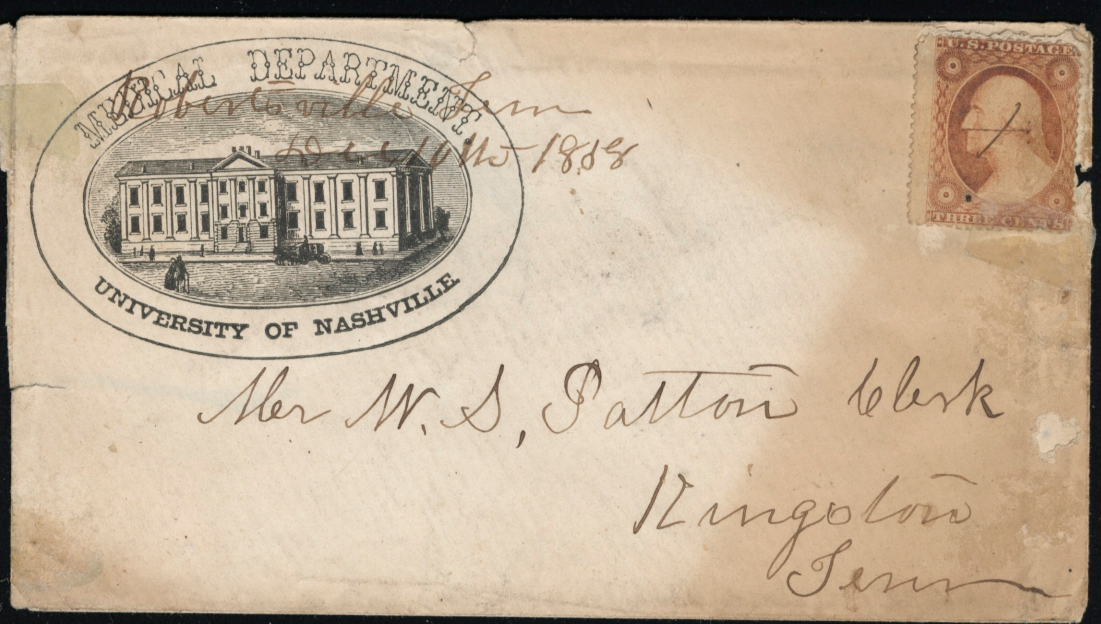 MEDICAL DEPARTMENT
Robertsville Tenn
Dec 10th 1858
UNIVERSITY OF NASHVILLE
U.S. POSTAGE
THREE CENTS
Mr W. S. Patton Clerk
Kingston
Tenn